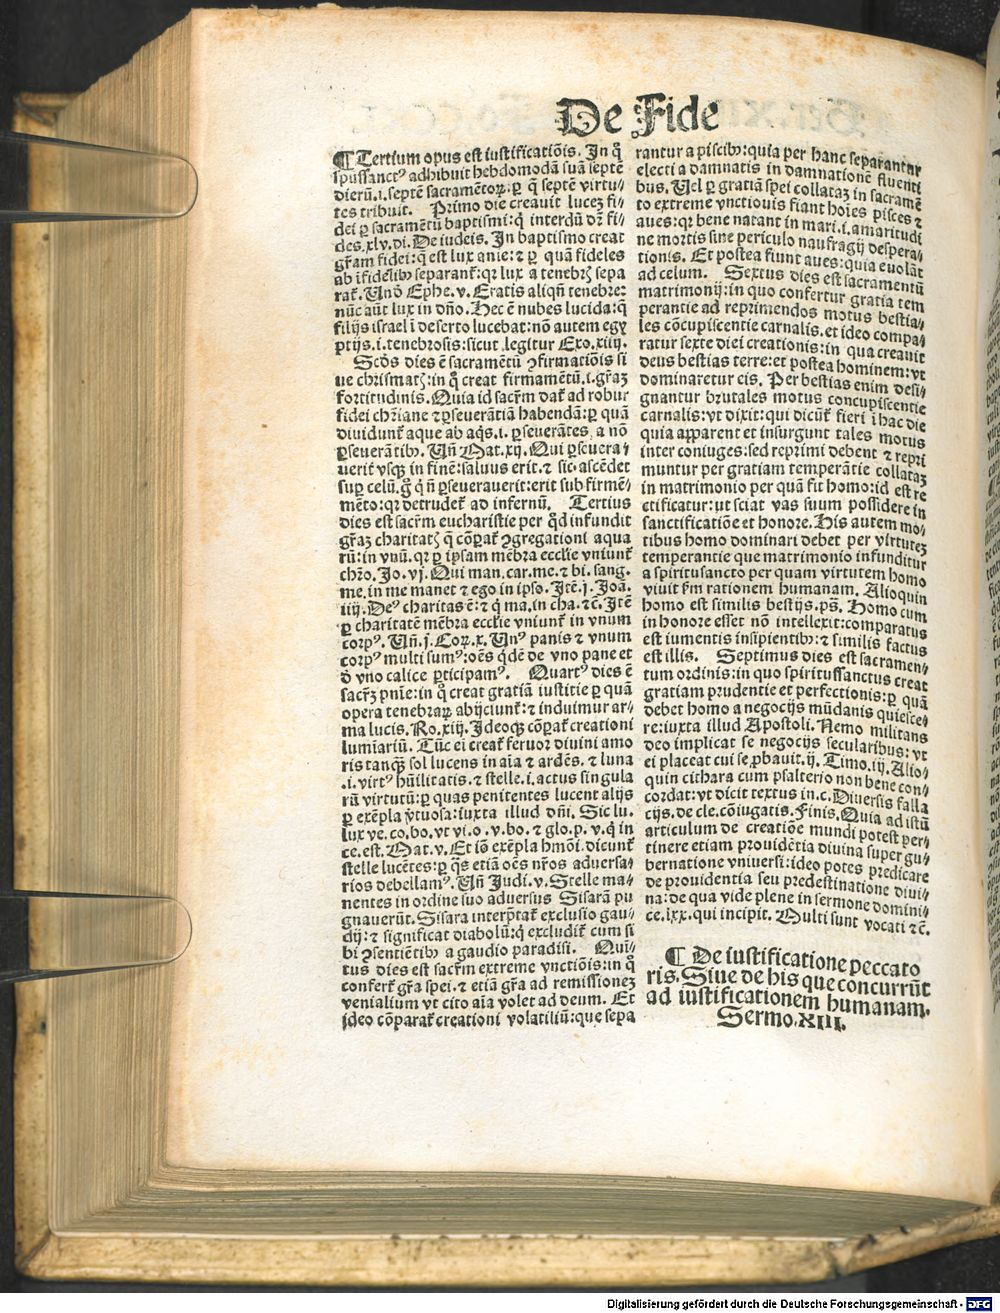 De Fide
¶ Tertium opus est iustificatiõis. In q̃
spũssanctꝰ adhibuit hebdomodã suã septẽ
dierũ.i. septẽ sacramẽtoꝝ: ꝑ q̃ septẽ virtu⸗
tes tribuit. Primo die creauit lucez fi⸗
dei ꝑ sacramẽtũ baptismi: q̃ interdũ dr̃ fi⸗
des. xlv. di. De iudeis. In baptismo creat
gr̃am fidei: q̃ est lux anie: ⁊ ꝑ quã fideles
ab ĩfidelibꝰ separant̃: qr lux a tenebris sepa
rat̃. Vnõ Ephe. v. Eratis aliqñ tenebre:
nũc aũt lux in dño. Hec ẽ nubes lucida: q̃
filijs israel ĩ deserto lucebat: nõ autem egy
ptijs .i. tenebrosis: sicut legitur Exo. xiiij.
Scďs dies ẽ sacramẽtũ ꝯfirmatiõis si
ue chrismatꝭ: in q̃ creat firmamẽtũ .i. gr̃aȝ
fortitudinis. Quia id sacr̃m dat̃ ad robur
fidei chr̃iane ⁊ ꝑseuerãtiã habendã: ꝑ quã
diuidunt̃ aque ab aq̃s .i. ꝑseuerãtes a nõ
ꝑseuerãtibꝰ. Vñ Mat. xij. Qui ꝑseuera⸗
uerit vsqꝫ in finẽ: saluus erit. ⁊ sic ascẽdet
suꝑ celũ. g̊ q̃ ñ ꝑseuerauerit: erit sub firmẽ⸗
mẽto: qr detrudet̃ ad infernũ. Tertius
dies est sacr̃m eucharistie per q̃d infundit
gr̃aȝ charitatꝭ q̃ cõꝑat̃ ꝯgregationi aqua
rũ: in vnũ. qr ꝑ ipsam mẽbra ecclie vniunt̃
chr̃o. Jo. vj. Qui man. car. me. ⁊ bi. sang⸗
me. in me manet ⁊ ego in ipso. Itẽ .j. Joã.
iiij. Deꝰ charitas ẽ: ⁊ q̃ ma. in cha. ⁊c̃. Itẽ
ꝑ charitatẽ mẽbra ecclie vniunt̃ in vnum
corpꝰ. Vñ .j. Cor. x. Vnꝰ panis ⁊ vnum
corpꝰ multi sumꝰ: oẽs q̃dẽ de vno pane et
ď vno calice ꝑticipamꝰ. Quartꝰ dies ẽ
sacr̃ȝ pnĩe: in q̃ creat gratiã iustitie ꝑ quã
opera tenebraꝝ abijciunt̃: ⁊ induimur ar⸗
ma lucis. Ro. xiij. Ideoqꝫ cõꝑat̃ creationi
lumĩariũ. Tũc ei creat̃ feruor diuini amo
ris tanqꝫ sol lucens in aĩa ⁊ ardẽs. ⁊ luna
.i. virtꝰ hũilitatis. ⁊ stelle .i. actus singula
rũ virtutũ: ꝑ quas penitentes lucent alijs
ꝑ exẽpla ṽtuosa: iuxta illud dñi. Sic lu.
lux ve. co. bo. vt vi. o. v. bo. ⁊ glo. p. v. q̃ in
ce. est. Mat. v. Et iõ exẽpla hmõi. dicunt̃
stelle lucẽtes: ꝑ q̃s etiã oẽs nr̃os aduersa⸗
rios debellamꝰ. Vñ Judi. v. Stelle ma⸗
nentes in ordine suo aduersus Sisarã pu
gnauerũt. Sisara interp̃tat̃ exclusio gau⸗
dij: ⁊ significat diabolũ: q̃ excludit̃ cum si
bi ꝯsentiẽtibꝰ a gaudio paradisi. Qui⸗
tus dies est sacr̃m extreme vnctiõis: in q̃
confert̃ gr̃a spei. ⁊ etiã gr̃a ad remissioneȝ
venialium vt cito aĩa volet ad deum. Et
ideo cõparat̃ creationi volatiliũ: que sepa
rantur a piscibꝰ: quia per hanc separantur
electi a damnatis in damnationẽ fluenti
bus. Vel ꝑ gratiã spei collataȝ in sacramẽ
to extreme vnctionis fiant hoĩes pisces ⁊
aues: qr bene natant in mari .i. amaritudi
ne mortis sine periculo naufragij despera⸗
tionis. Et postea fiunt aues: quia euolãt
ad celum. Sextus dies est sacramentũ
matrimonij: in quo confertur gratia tem
perantie ad reprimendos motus bestia⸗
les cõcupiscentie carnalis. et ideo compa⸗
ratur sexte diei creationis: in qua creauit
deus bestias terre: et postea hominem: vt
dominaretur eis. Per bestias enim desi⸗
gnantur brutales motus concupiscentie
carnalis: vt dixit: qui dicũt̃ fieri ĩ hac die
quia apparent et insurgunt tales motus
inter coniuges: sed reprimi debent ⁊ repri
muntur per gratiam temperãtie collataȝ
in matrimonio per quã fit homo: id est re
ctificatur: ut sciat vas suum possidere in
sanctificatiõe et honore. His autem mo⸗
tibus homo dominari debet per virtuteȝ
temperantie que matrimonio infunditur
a spiritusancto per quam virtutem homo
viuit s̃m rationem humanam. Alioquin
homo est similis bestijs. ps̃. Homo cum
in honore esset nõ intellexit: comparatus
est iumentis insipientibꝰ: ⁊ similis factus
est illis. Septimus dies est sacramen⸗
tum ordinis: in quo spiritussanctus creat
gratiam prudentie et perfectionis: ꝑ quã
debet homo a negocijs mũdanis quiesce⸗
re: iuxta illud Apostoli. Nemo militans
deo implicat se negocijs secularibus: vt
ei placeat cui se ꝓbauit. ij. Timo. ij. Alio⸗
quin cithara cum psalterio non bene con⸗
cordat: vt dicit textus in .c. Diuersis falla
cijs. de cle. cõiugatis. Finis. Quia ad istũ
articulum de creatiõe mundi potest per⸗
tinere etiam prouidẽtia diuina super gu⸗
bernatione vniuersi: ideo potes predicare
de prouidentia seu predestinatione diui⸗
na: de qua vide plene in sermone domini⸗
ce. lxx. qui incipit. Multi sunt vocati ⁊c̃.
¶ De iustificatione peccato
ris. Siue de his que concurrũt
ad iustificationem humanam.
Sermo. XIII.
Digitalisierung gefördert durch die Deutsche Forschungsgemeinschaft - DFG